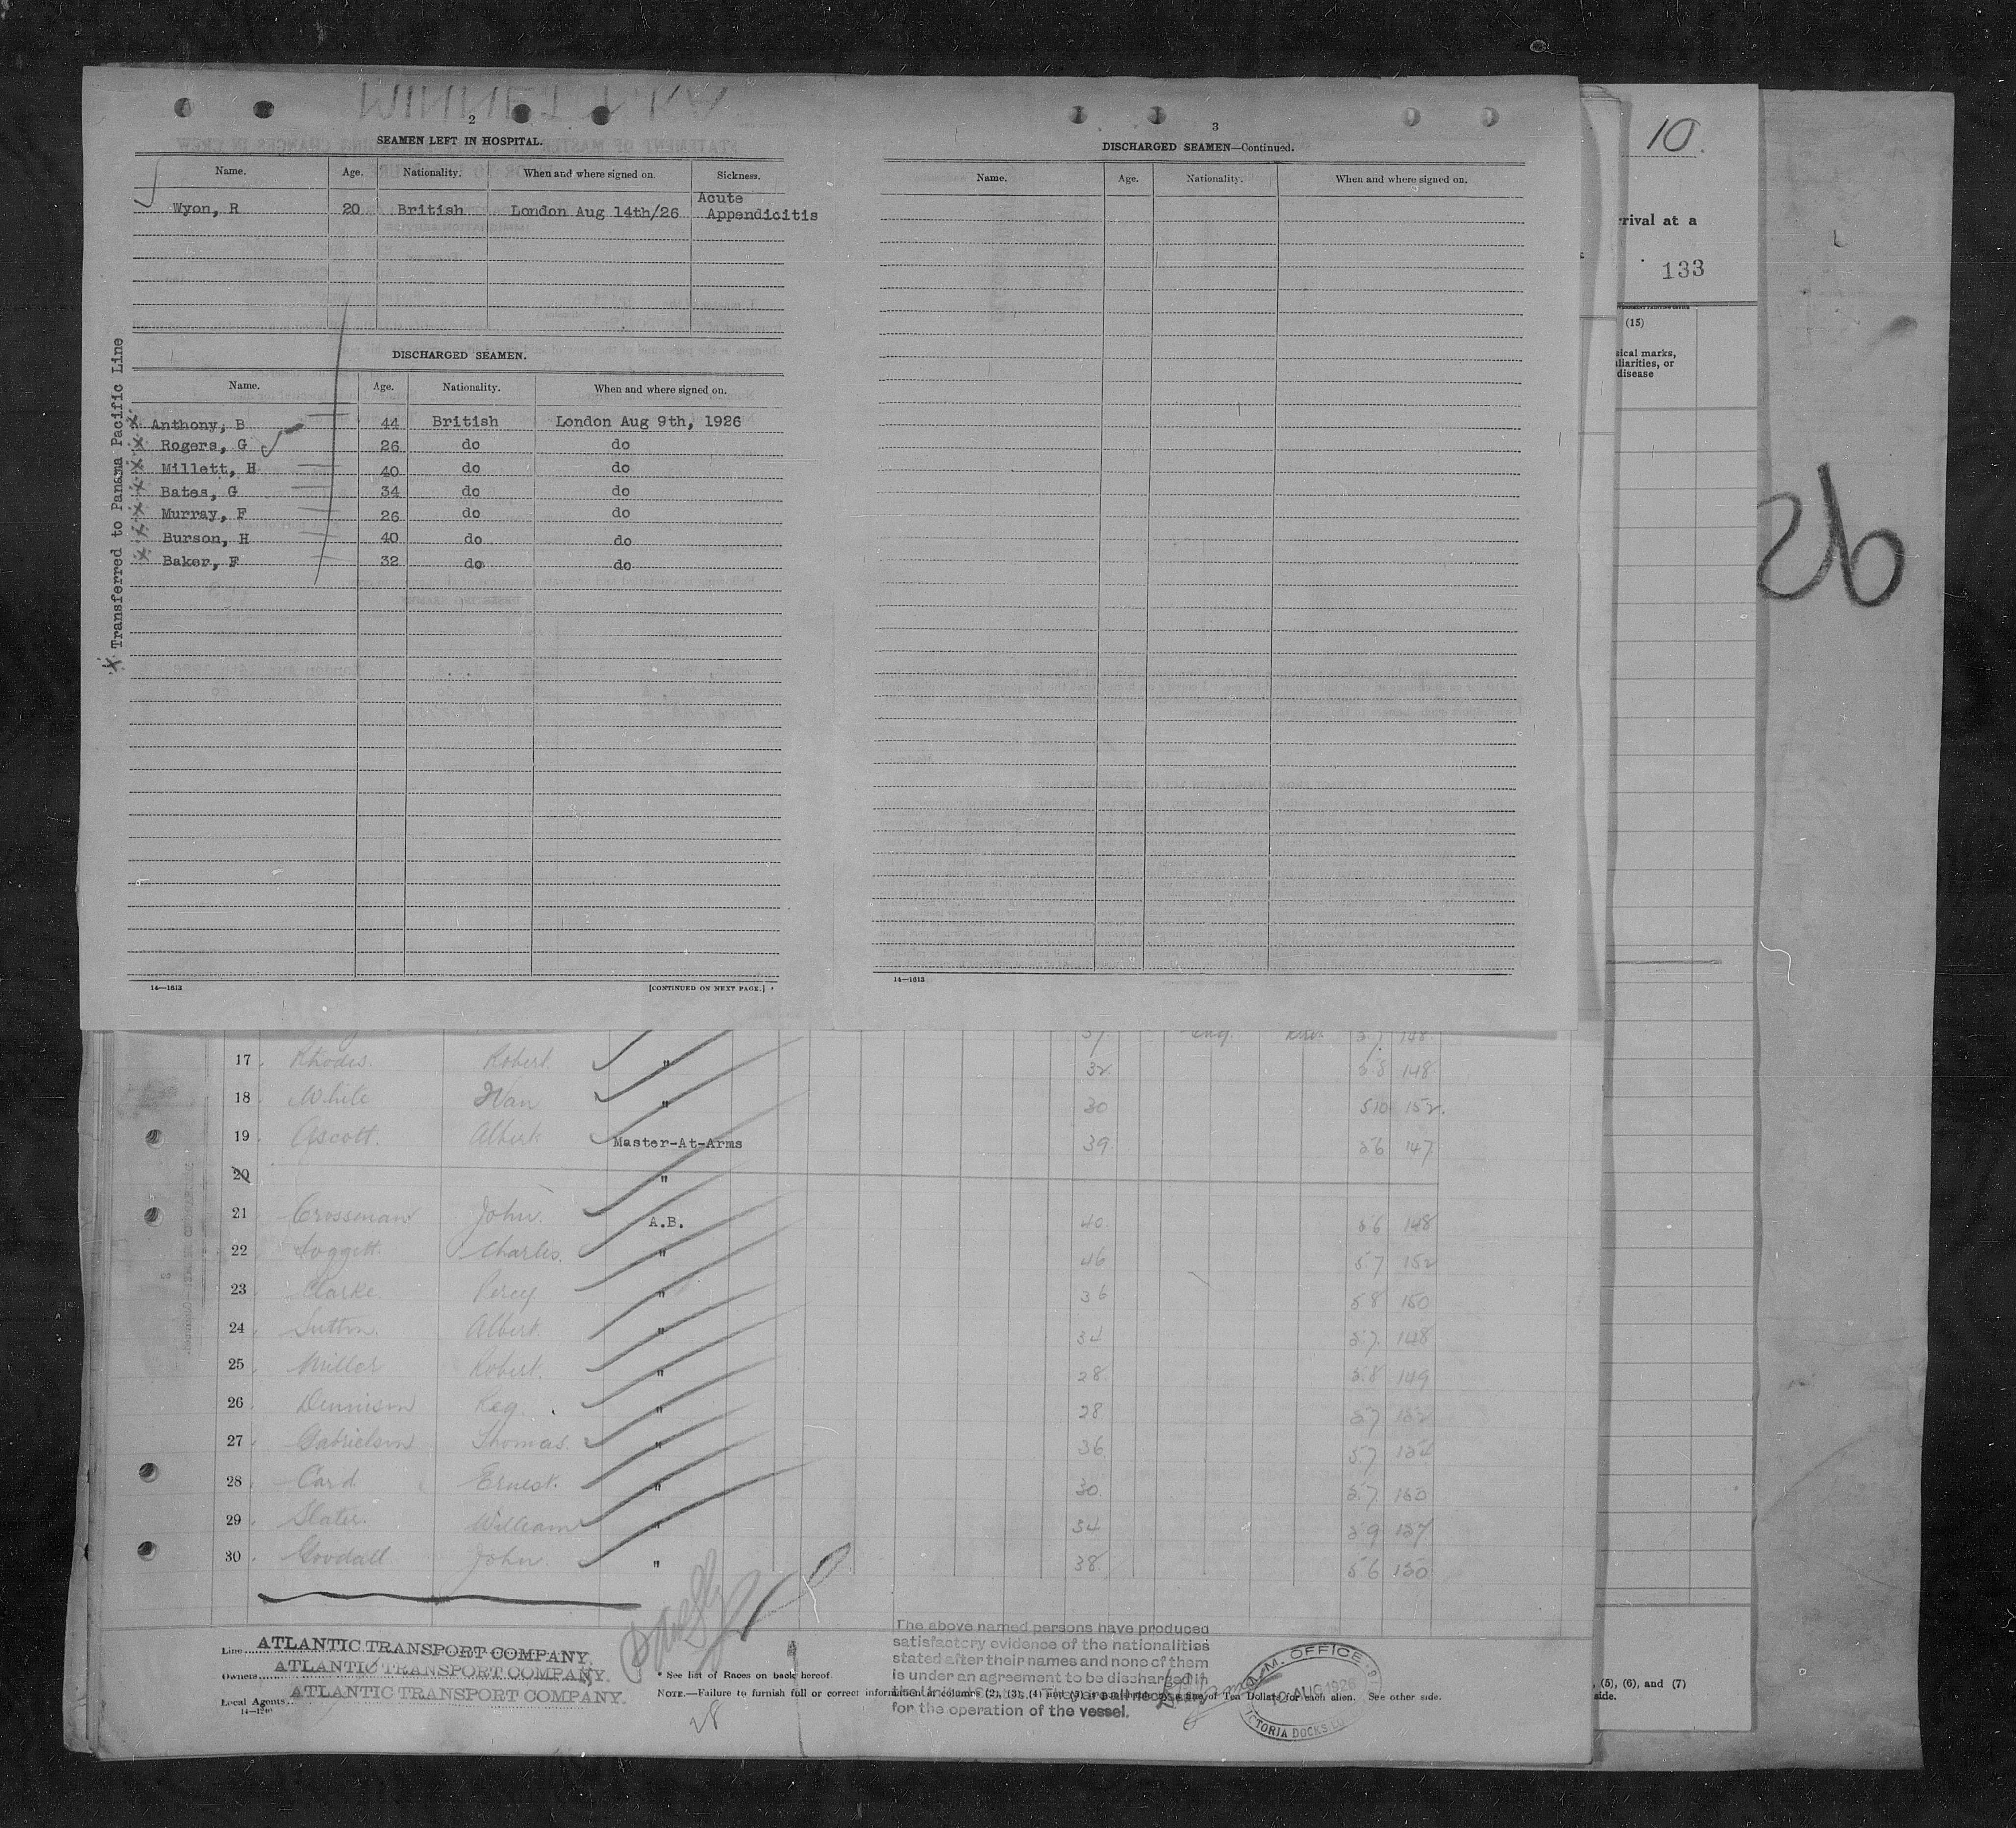 2
SEAMEN LEFT IN HOSPITAL.
Name. Age. Nationality. When and where signed on. Sickness.
Wyon, R 20 British London Aug 14th/26 Acute Appendicitis
DISCHARGED SEAMEN.
Name. Age. Nationality. When and where signed on.
x Anthony, B 44 British London Aug 9th, 1926
x Rogers, G 26 do do
x Millett, H 40 do do
x Bates, G 34 do do
x Murray, F 26 do do
x Burson, H 40 do do
x Baker, F 32 do do
x Transferred to Panama Pacific Line
14—1613 [CONTINUED ON NEXT PAGE.]
3
DISCHARGED SEAMEN—Continued.
Name. Age. Nationality. When and where signed on.
14—1613
10.
rrival at a
133
(15)
sical marks,
uliarities, or
disease
26
37 Eng. 5.7 148
17 Rhodes. Robert " 32 5.8 148
18 White " 30 5.10 152.
19 Ascott. Albert Master-At-Arms 39. 5.6 147
20 "
21 Crossman John. A.B. 40. 5.6 148
22 Charles. " 46 5.7 152
23 Clarke. Percy " 36 5.8 150
24 Sutton. Albert " 34 5.7. 148
25 Miller Robert. " 28. 5.8 149
26 Dennison Reg. " 28. 5.7 152
27 Gabrielson Thomas. " 36 5.7 154
28 Card. Ernest. " 30. 5.7. 150
29 Slater. William " 34 5.9 157
30 Goodall John. " 38. 5.6 150
Line ATLANTIC TRANSPORT COMPANY.
Owners ATLANTIC TRANSPORT COMPANY.
Local Agents ATLANTIC TRANSPORT COMPANY.
14—1240
* See list of Races on back hereof.
NOTE.—Failure to furnish full or correct information in columns (2), (3), (4) and (9) is punishable by a fine of Ten Dollars for each alien. See other side.
28
The above named persons have produced
satisfactory evidence of the nationalities
stated after their names and none of them
is under an agreement to be discharged in
for the operation of the vessel.
M.M. OFFICE
10 AUG 1926
VICTORIA DOCKS
, (5), (6), and (7)
side.